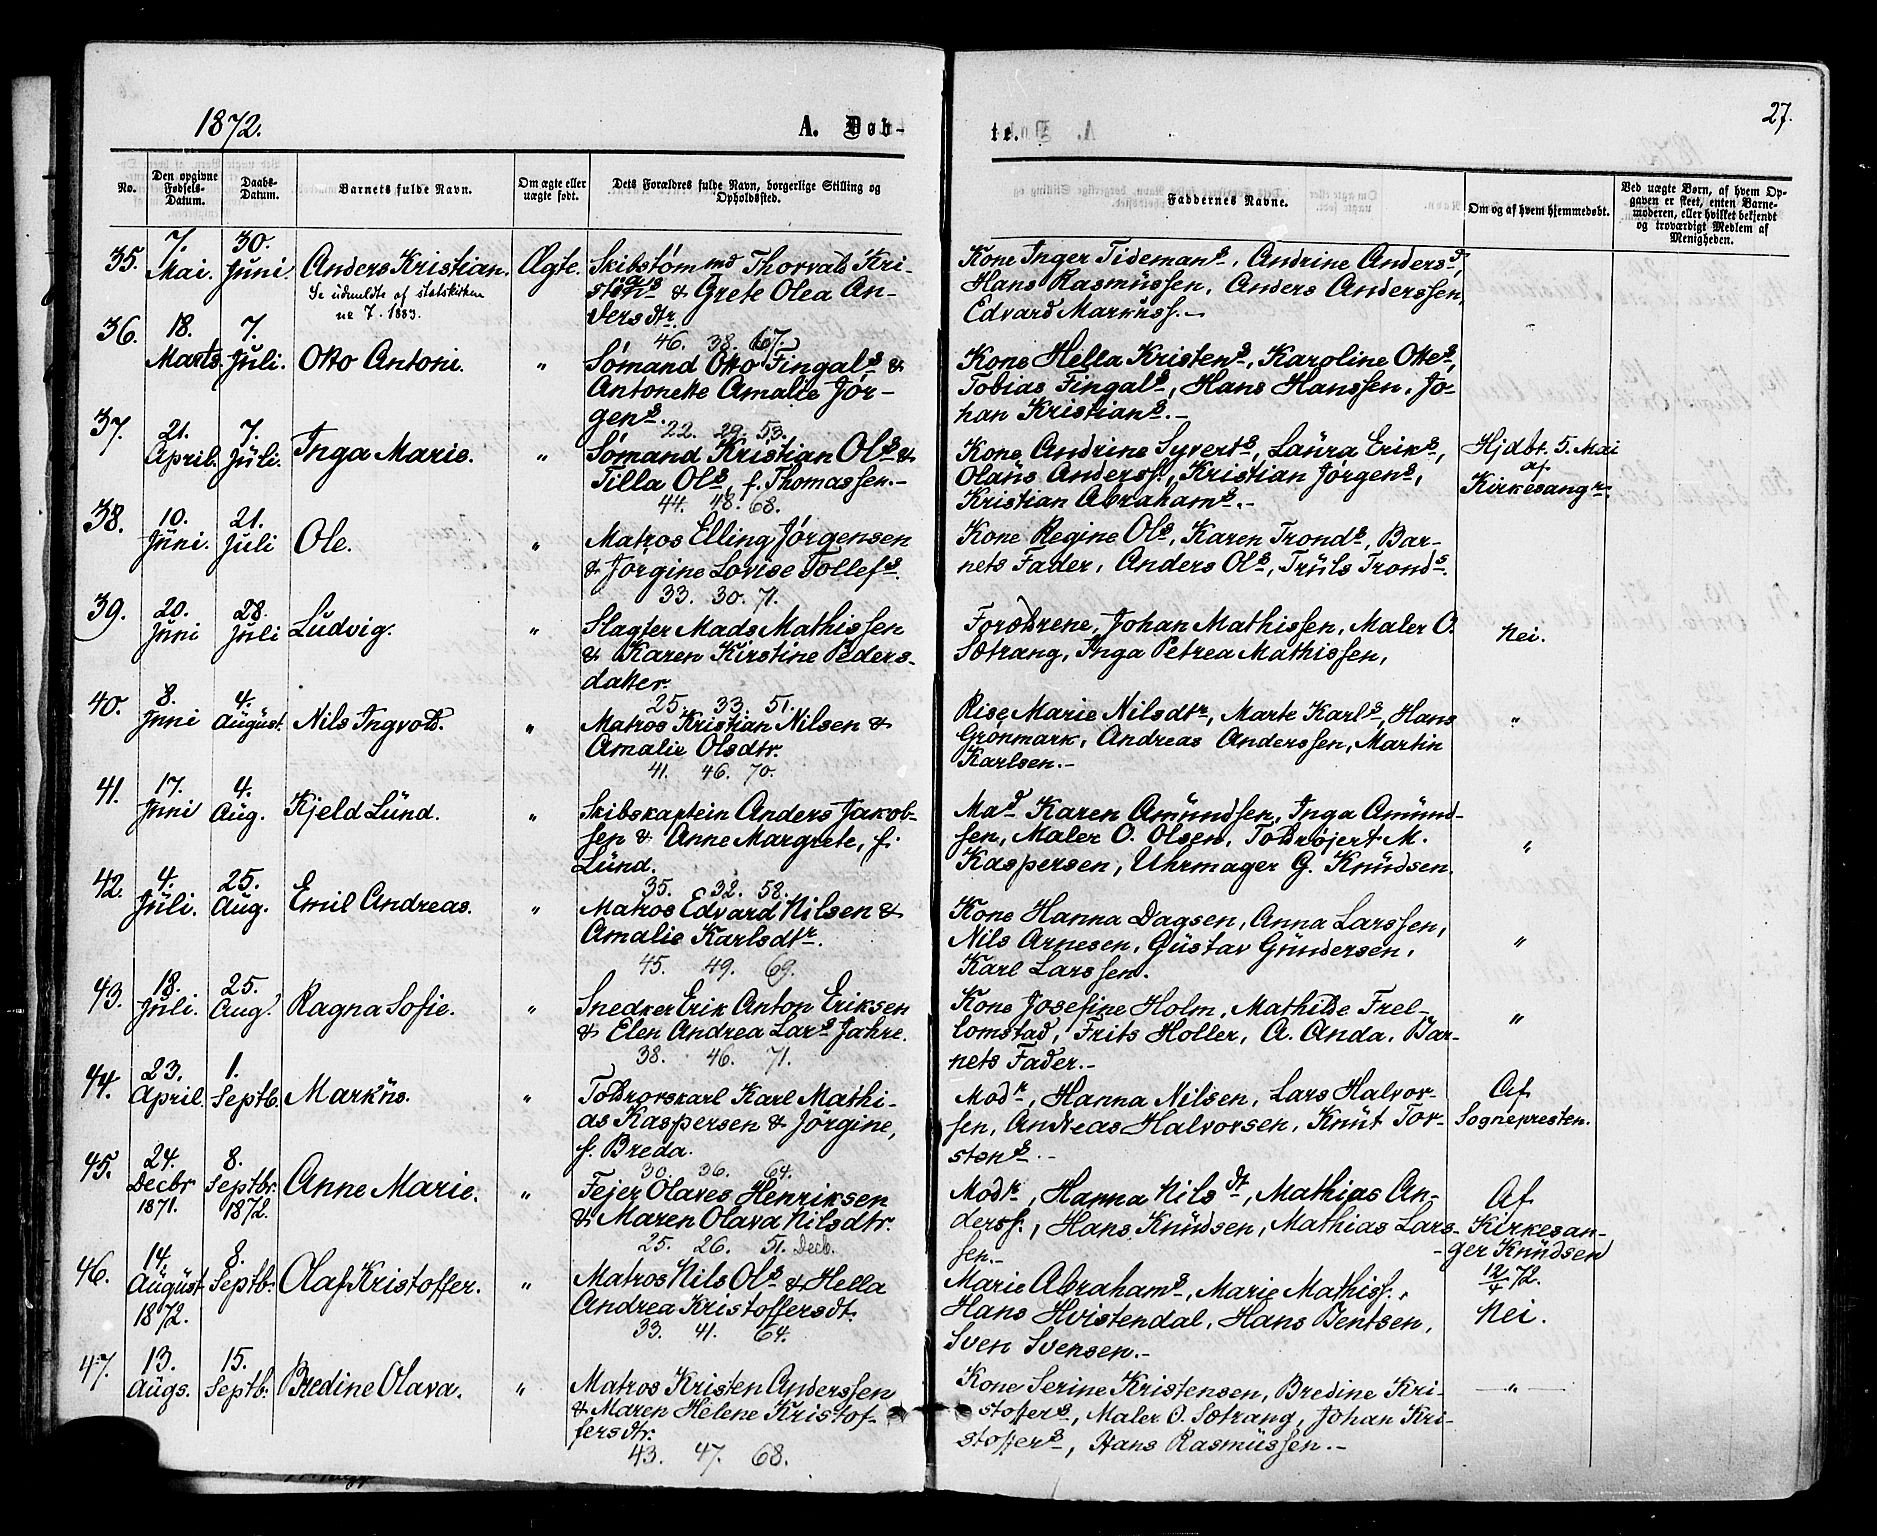 1872.
A. Døb-
te.
27.
No.
Den opgivne Fødsels-Datum.
Daabs-Datum.
Barnets fulde Navn.
Om ægte eller uægte født.
Dets Forældres fulde Navn, borgerlige Stilling og Opholdssted.
Faddernes Navne.
Om og af hvem hjemmedøbt.
Ved uægte Børn, af hvem Op-
gaven er skeet, enten Barne-
moderen, eller hvilket bekjendt
og troværdigt Medlem af
Menigheden.
35. 7. Mai. 30. Juni. Anders Kristian. Ægte.
Se udmeldte af statskirken
nr 7. 1883.
Skibstømmd Thorvald Kri-
stians & Grete Olea An-
dersdtr.
46. 38. 67.
Kone Inger Tidemans, Andrine Anders,
Hans Rasmüssen, Anders Anderssen,
Edvard Markuss.-
36. 18. Marts. 7. Juli. Otto Antoni. "
Sømand Otto Fingals &
Antonette Amalie Jör-
gens.
22. 29. 53.
Kone Hella Kristens, Karoline Ottes,
Tobias Fingals, Hans Hanssen, Jo-
han Kristians.-
37. 21. April. 7. Juli. Inga Marie. "
Sømand Kristian Ols &
Tilla Ols, f. Thomassen.-
44. 48. 68.
Kone Andrine Syverts, Laura Eriks,
Olaüs Anderss., Kristian Jørgens,
Kristian Abrahams.-
Hjdbt. 5. Mai
af
Kirkesangr.
38. 10. Juni. 21. Juli Ole. "
Matros Elling Jørgensen
& Jørgine Lovise Tollefs.
33. 30. 71.
Kone Regine Ols, Karen Tronds, Bar-
nets Fader, Anders Ols, Trüls Tronds.
39. 20. Juni 28. Juli Ludvig. "
Slagter Mads Mathissen
& Karen Kirstine Peders-
datter.
25. 33. 51.
Forældrene, Johan Mathissen, Maler O.
Sætrang, Inga Petrea Mathissen,
Nei.
40. 8. Juni 4. August. Nils Ingvold. "
Matros Kristian Nilsen &
Amalie Olsdtr.
41. 46. 70.
Rise Marie Nilsdtr, Marte Karls, Hans
Grönmark, Andreas Anderssen, Martin
Karlsen.-
"
41. 17. Juni 4. Aug. Kjeld Lünd. "
Skibskaptein Anders Jakob-
sen & Anne Margrete, f.
Lünd.
35. 32. 58.
Mad Karen Amündsen, Inga Amünd-
sen, Maler O. Olsen, Toldrojert M.
Kaspersen, Uhrmager G. Knüdsen.
"
42. 4. Juli. 25. Aug. Emil Andreas. "
Matros Edvard Nilsen &
Amalie Karlsdtr.
45. 49. 69.
Kone Hanna Dagsen, Anna Larssen,
Nils Arnesen, Güstav Gündersen,
Karl Larssen.
"
43. 18. Juli. 25. Aug. Ragna Sofie. "
Snedker Erik Anton Eriksen
& Elen Andrea Lars Jahre.
38. 46. 71.
Kone Josefine Holm, Mathilde Frel-
lomstad, Frits Holler, A. Anda, Bar-
nets Fader.-
"
44. 23. April. 1. Septb. Markus. "
Toldrorskarl Karl Mathi-
as Kaspersen & Jörgine,
f. Breda.
30. 36. 64.
Modr, Hanna Nilsen, Lars Halvor-
sen, Andreas Halvorsen, Knüt Tor-
stens.-
Af
Sognepresten.
45. 24. Decbr 1871. 8. Septbr. 1872. Anne Marie. "
Fejer Olaves Henriksen
& Maren Olava Nilsdtr.
25. 26. 51. Decb.
Modr, Hanna Nilsdt, Mathias An-
derss., Hans Knüdsen, Mathias Lars-
sen.-
Af
Kirkesan-
ger Knüdsen
12/4 72.
46. 14. August 1872. 8. Septb. Olaf Kristoffer. "
Matros Nils Ols & Hella
Andrea Kristoffersdt.
33. 41. 64.
Marie Abrahams, Marie Mathiss.,
Hans Hvistendal, Hans Bentsen,
Sven Svensen.-
Nei.
47. 13. Augs. 15. Septb. Bredine Olava. "
Matros Kristen Anderssen
& Maren Helene Kristof-
fersdtr.
43. 47. 68.
Kone Serine Kristensen, Bredine Kri-
stoffers, Maler O. Sætrang, Johan Kri-
stoffers, Hans Rasmüssen.-
"